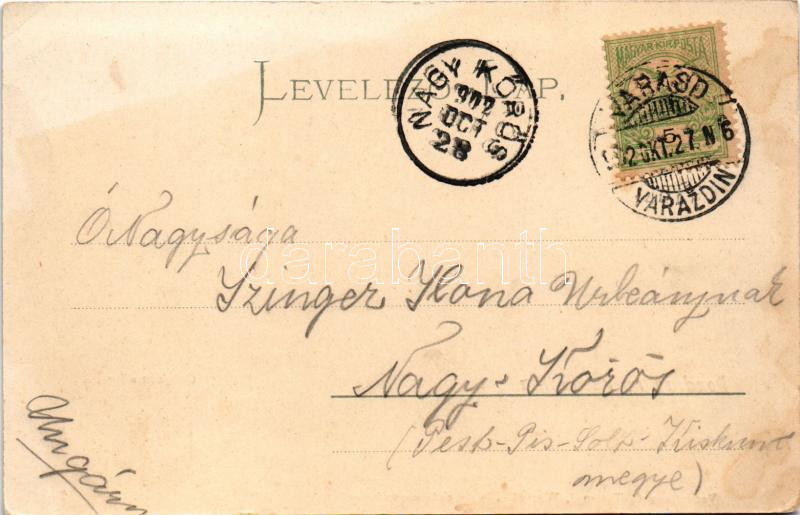 LEVELEZŐ-LAP.
NAGY KŐRÖS
902
OCT
28
MAGYAR KIR. POSTA
5
VARASD
OKT. 27. N 6
VARAŽDIN
Ő Nagysága
Szinger Ilona Urleánynak
Nagy-Kőrös
(Pest-Pis-Solt-Kiskun
megye)
Ungarn
darabanth